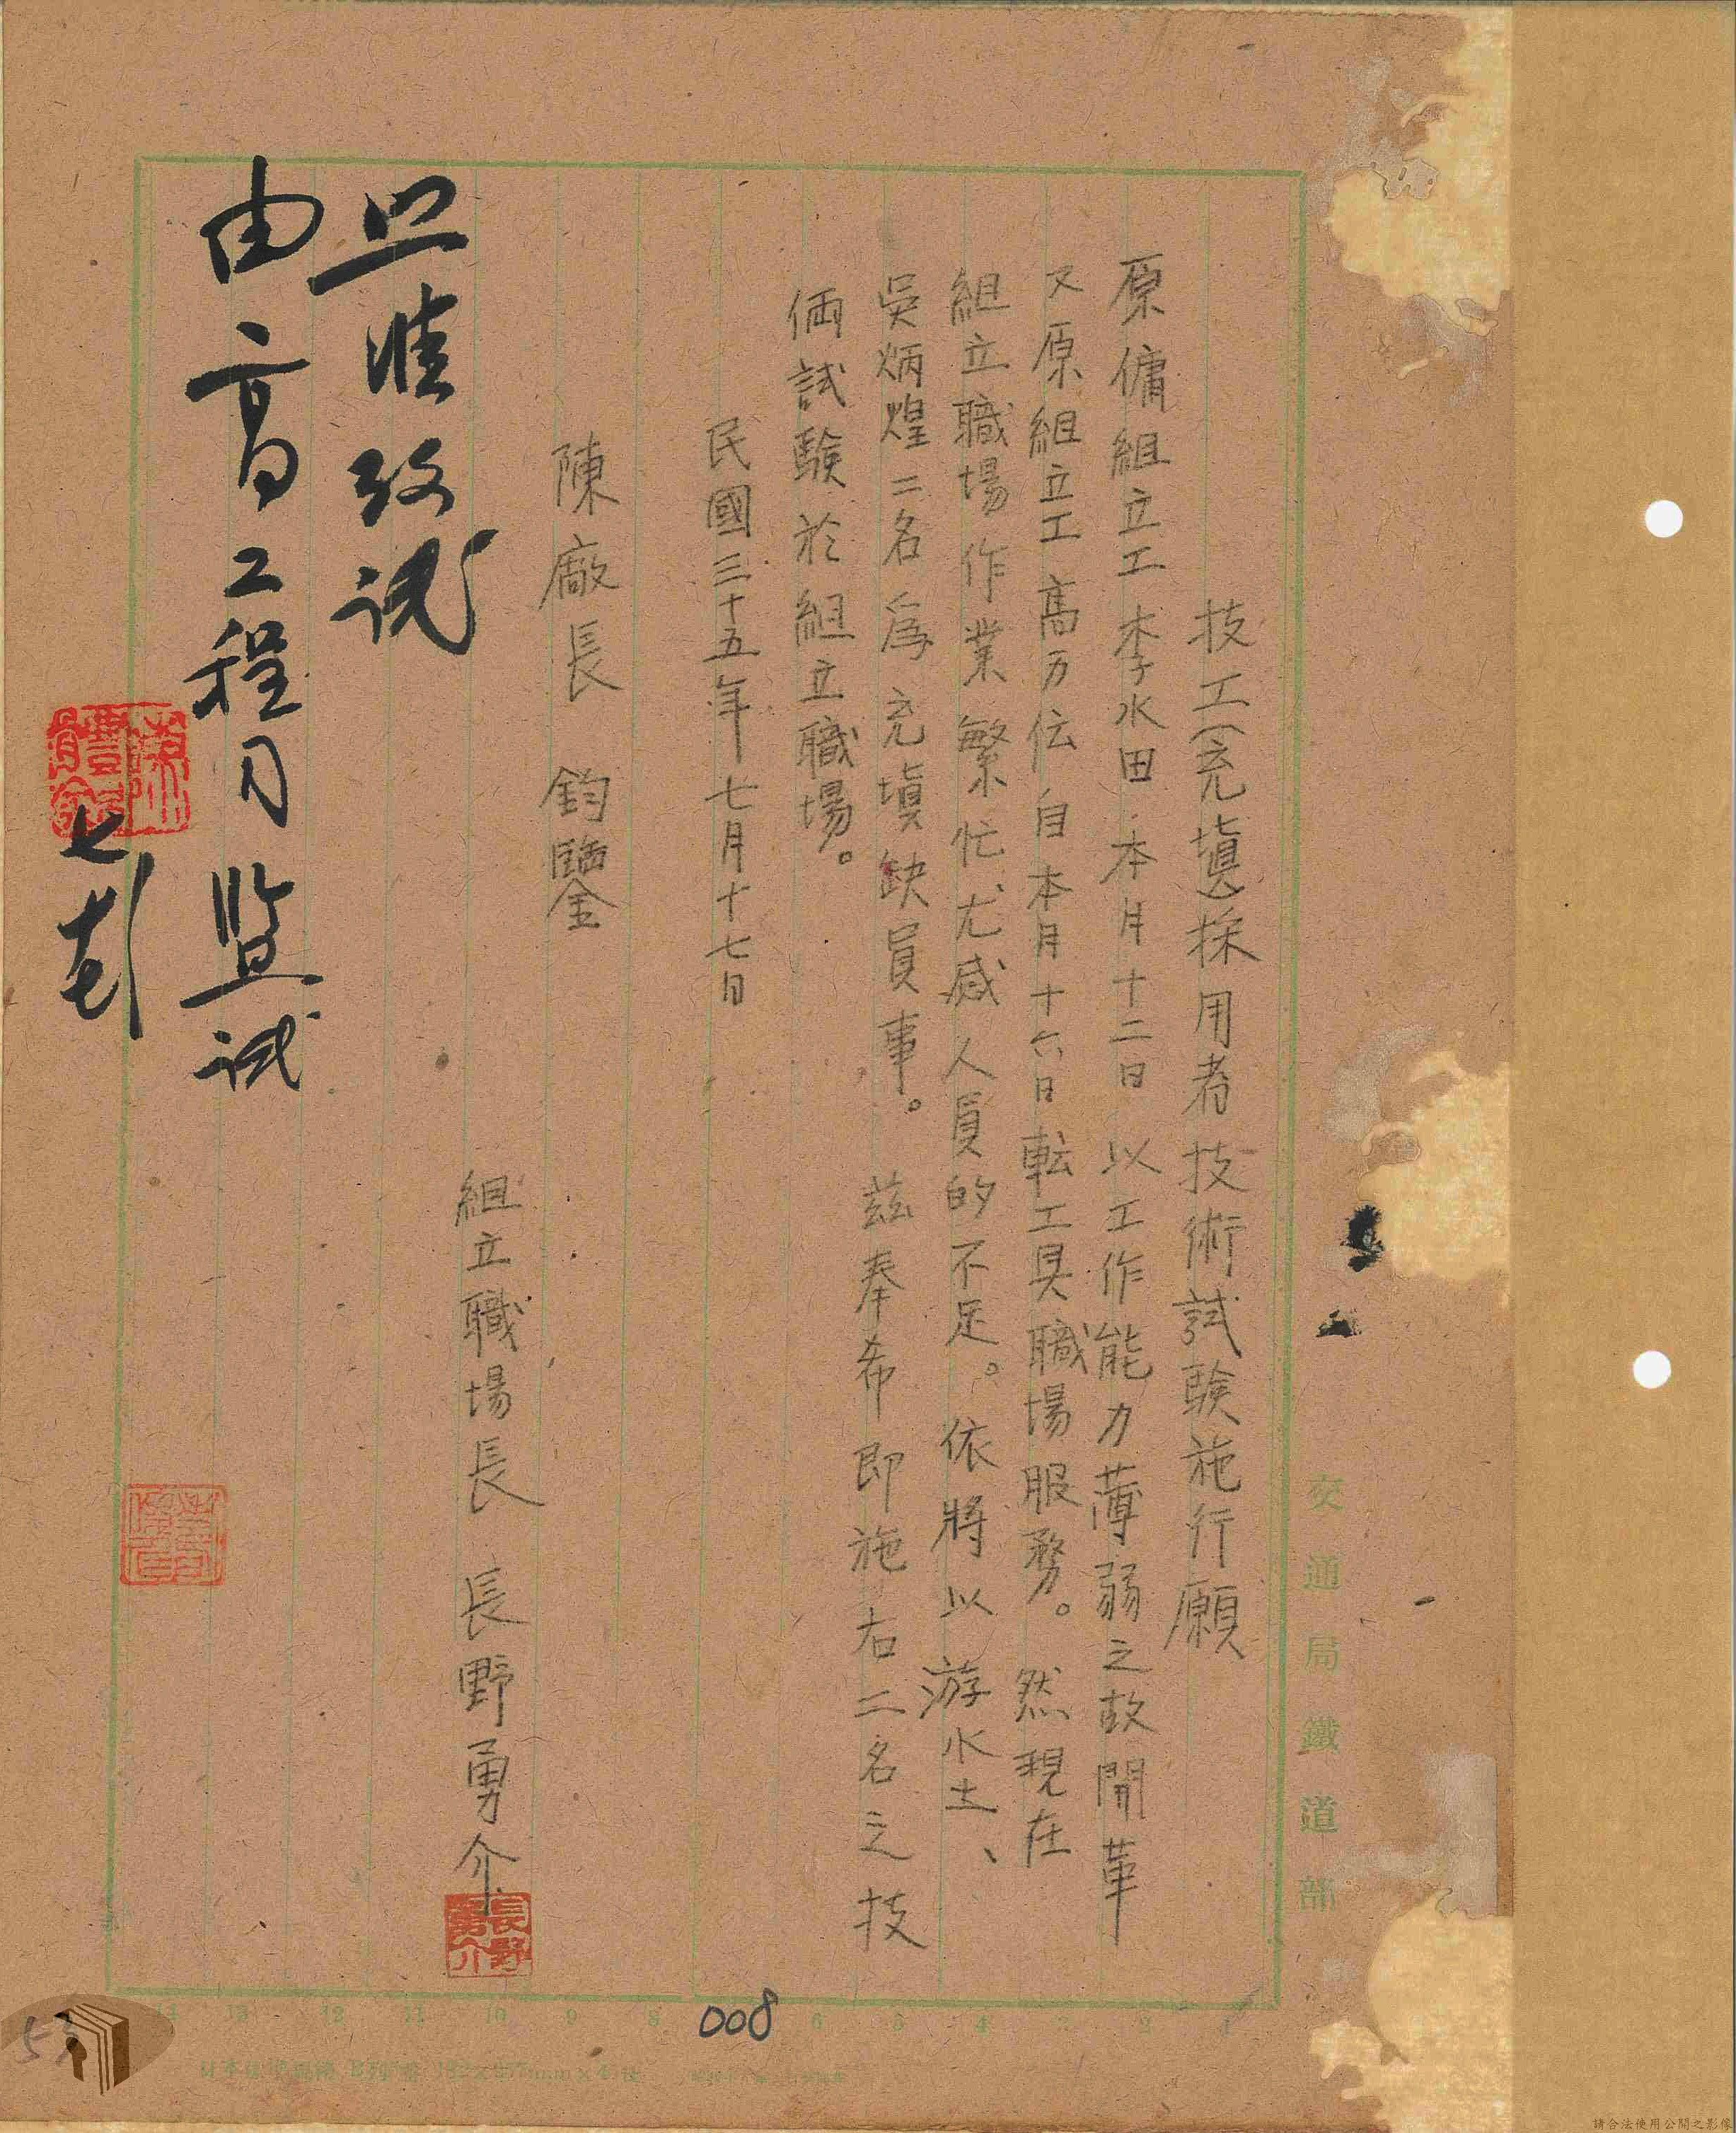 技工(充塡)採用者技術試驗施行願
原傭組立工李水田本月十二日以工作能力薄弱之故開革
又原組立工高万伝自本月十六日転工具職場服務。然現在
組立職場作業繁忙尤感人員的不足。依將以游水土、
吳炳煌二名爲充塡缺員事。茲奉希即施右二名之技
倆試驗於組立職場。
民國三十五年七月十七日
陳廠長 鈞鑒
組立職場長 長野勇介
長野勇介
照准考試
由高工程司監試
七
交通局鐵道部
1 2 3 4 5 6 8 9 10 11 12 13 14
008
請合法使用公開之影像